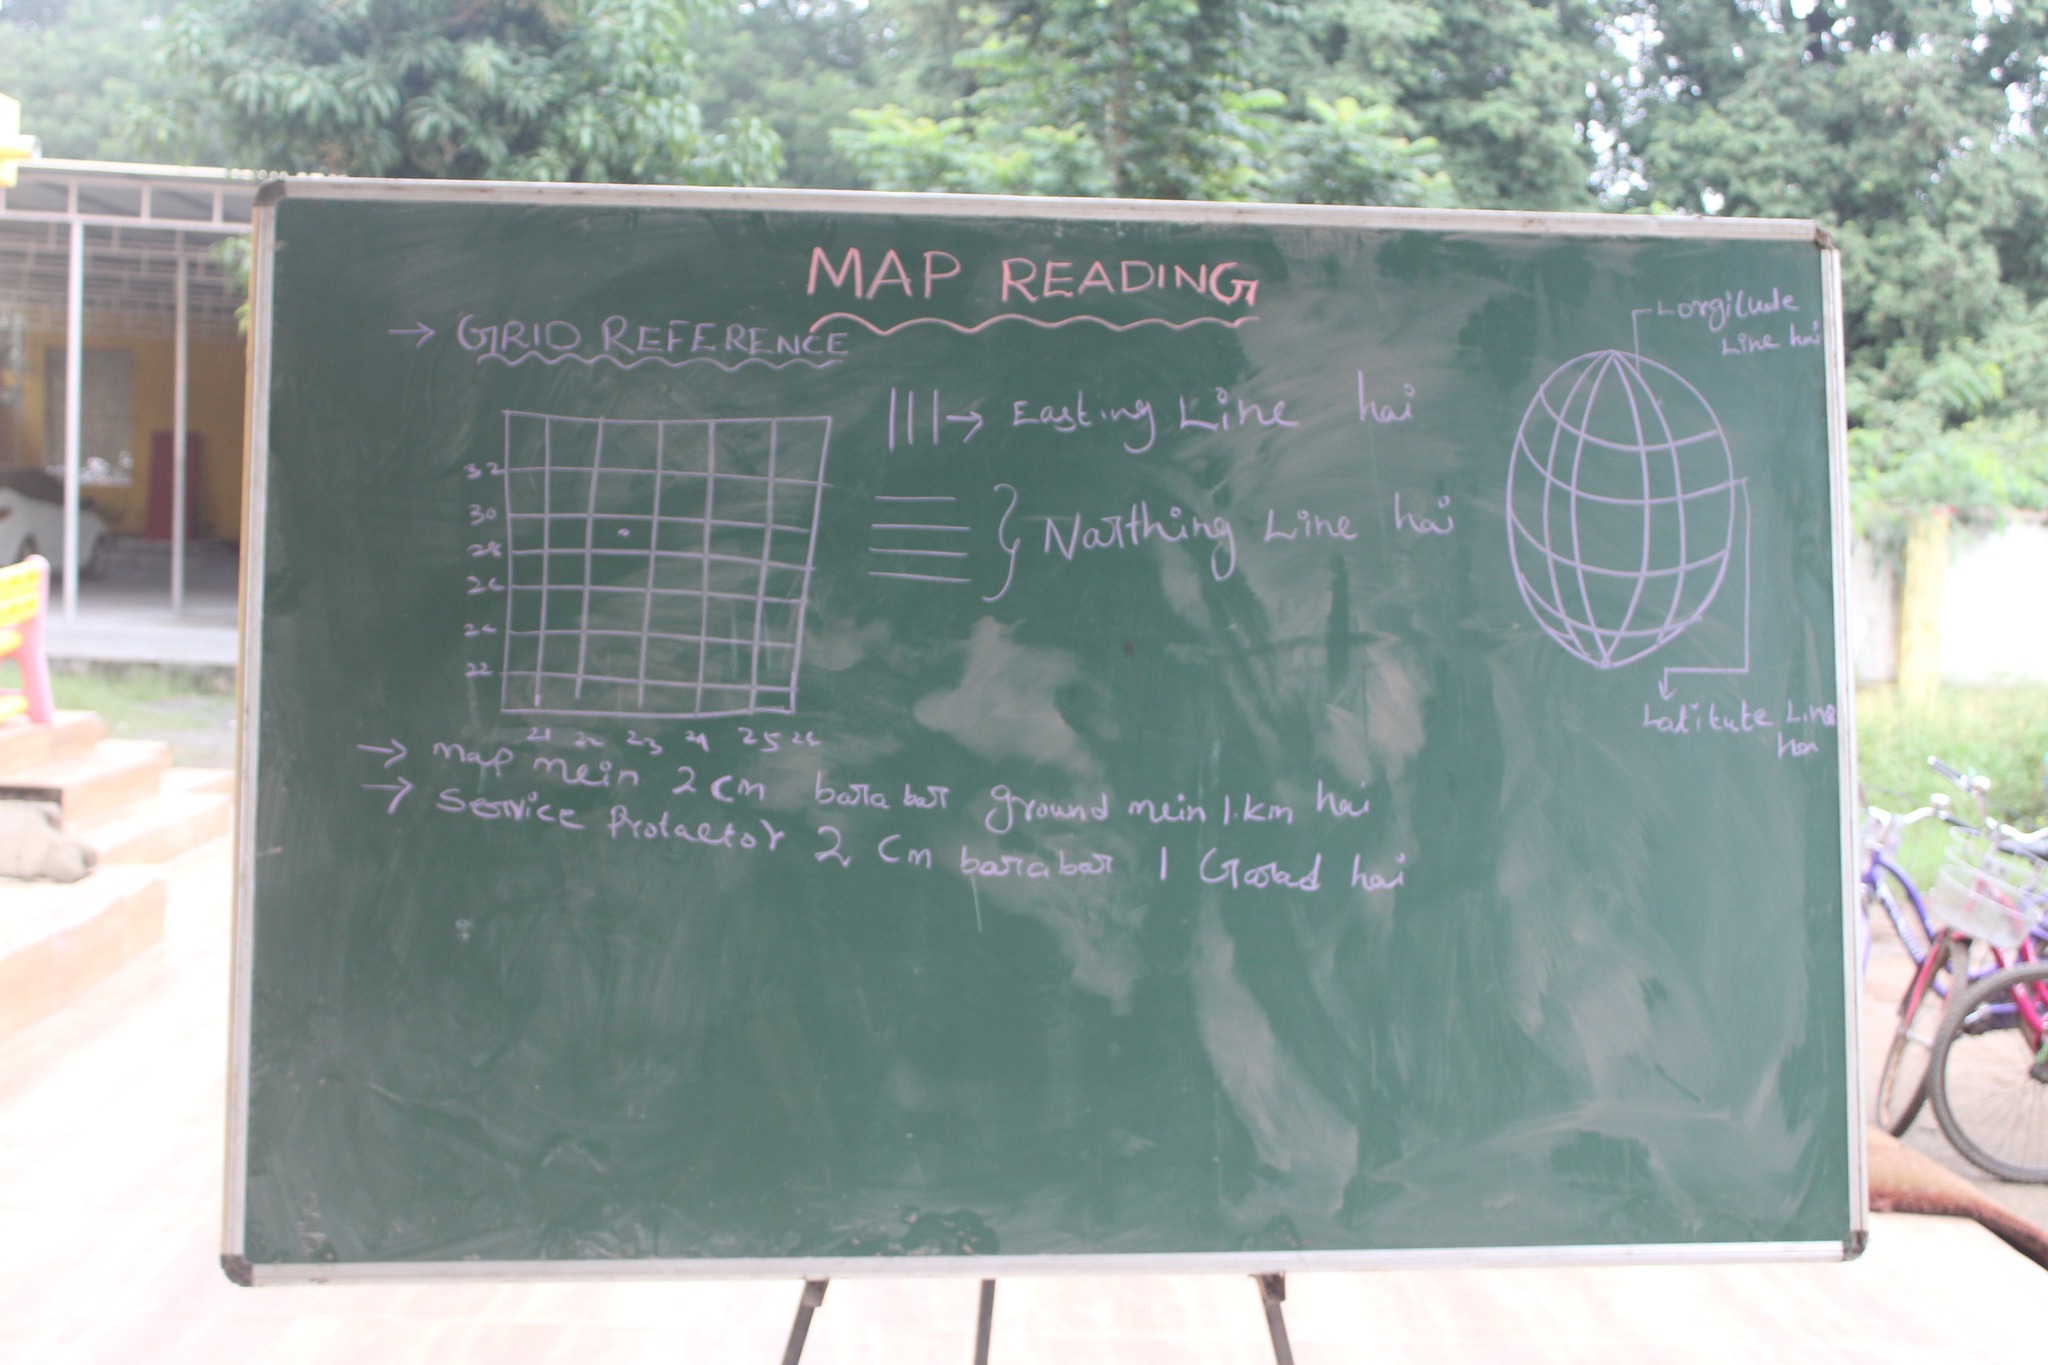 MAP READING
→ GRID REFERENCE
||| → Easting Line hai
Narthing Line hai
32
30
28
26
24
22
21 22 23 24 25 26
Longitude
Line hai
Latitute Line
hai
→ map mein 2 cm barabar ground mein 1.km hai
→ Service Protactor 2 cm barabar 1 hai